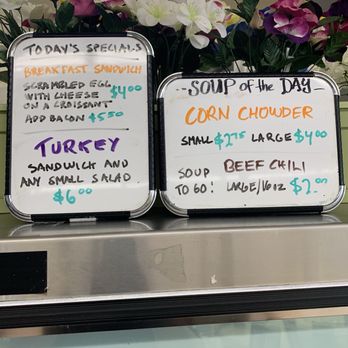 TODAY'S SPECIALS
BREAKFAST SANDWICH
SCRAMBLED EGG
WITH CHEESE $4.00
ON A CROISSANT
ADD BACON $5.50
TURKEY
SANDWICH AND
ANY SMALL SALAD
$6.00
SOUP OF THE DAY
CORN CHOWDER
SMALL $2.75 LARGE $4.00
SOUP BEEF CHILI
TO GO! LARGE/16 OZ